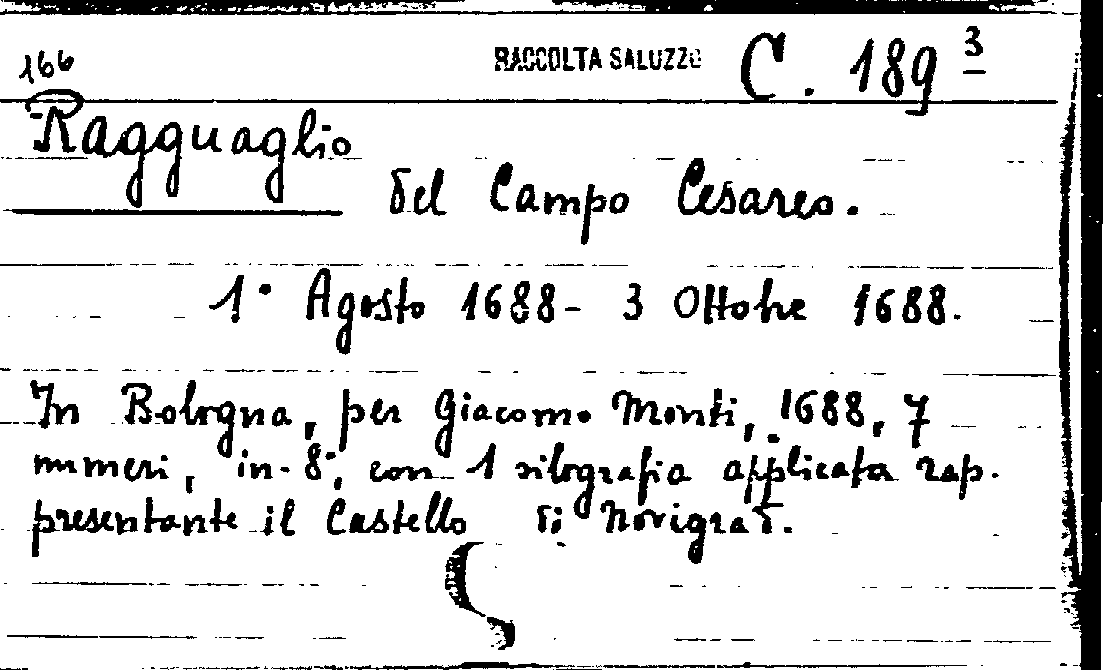 166 RACCOLTA SALUZZO C. 189 3
Ragguaglio
del Campo Cesareo.
1° Agosto 1688 - 3 Ottobre 1688.
In Bologna, per Giacomo Monti, 1688, 7
numeri, in-8°, con 1 silografia applicata rap-
presentante il Castello di Novigrad.